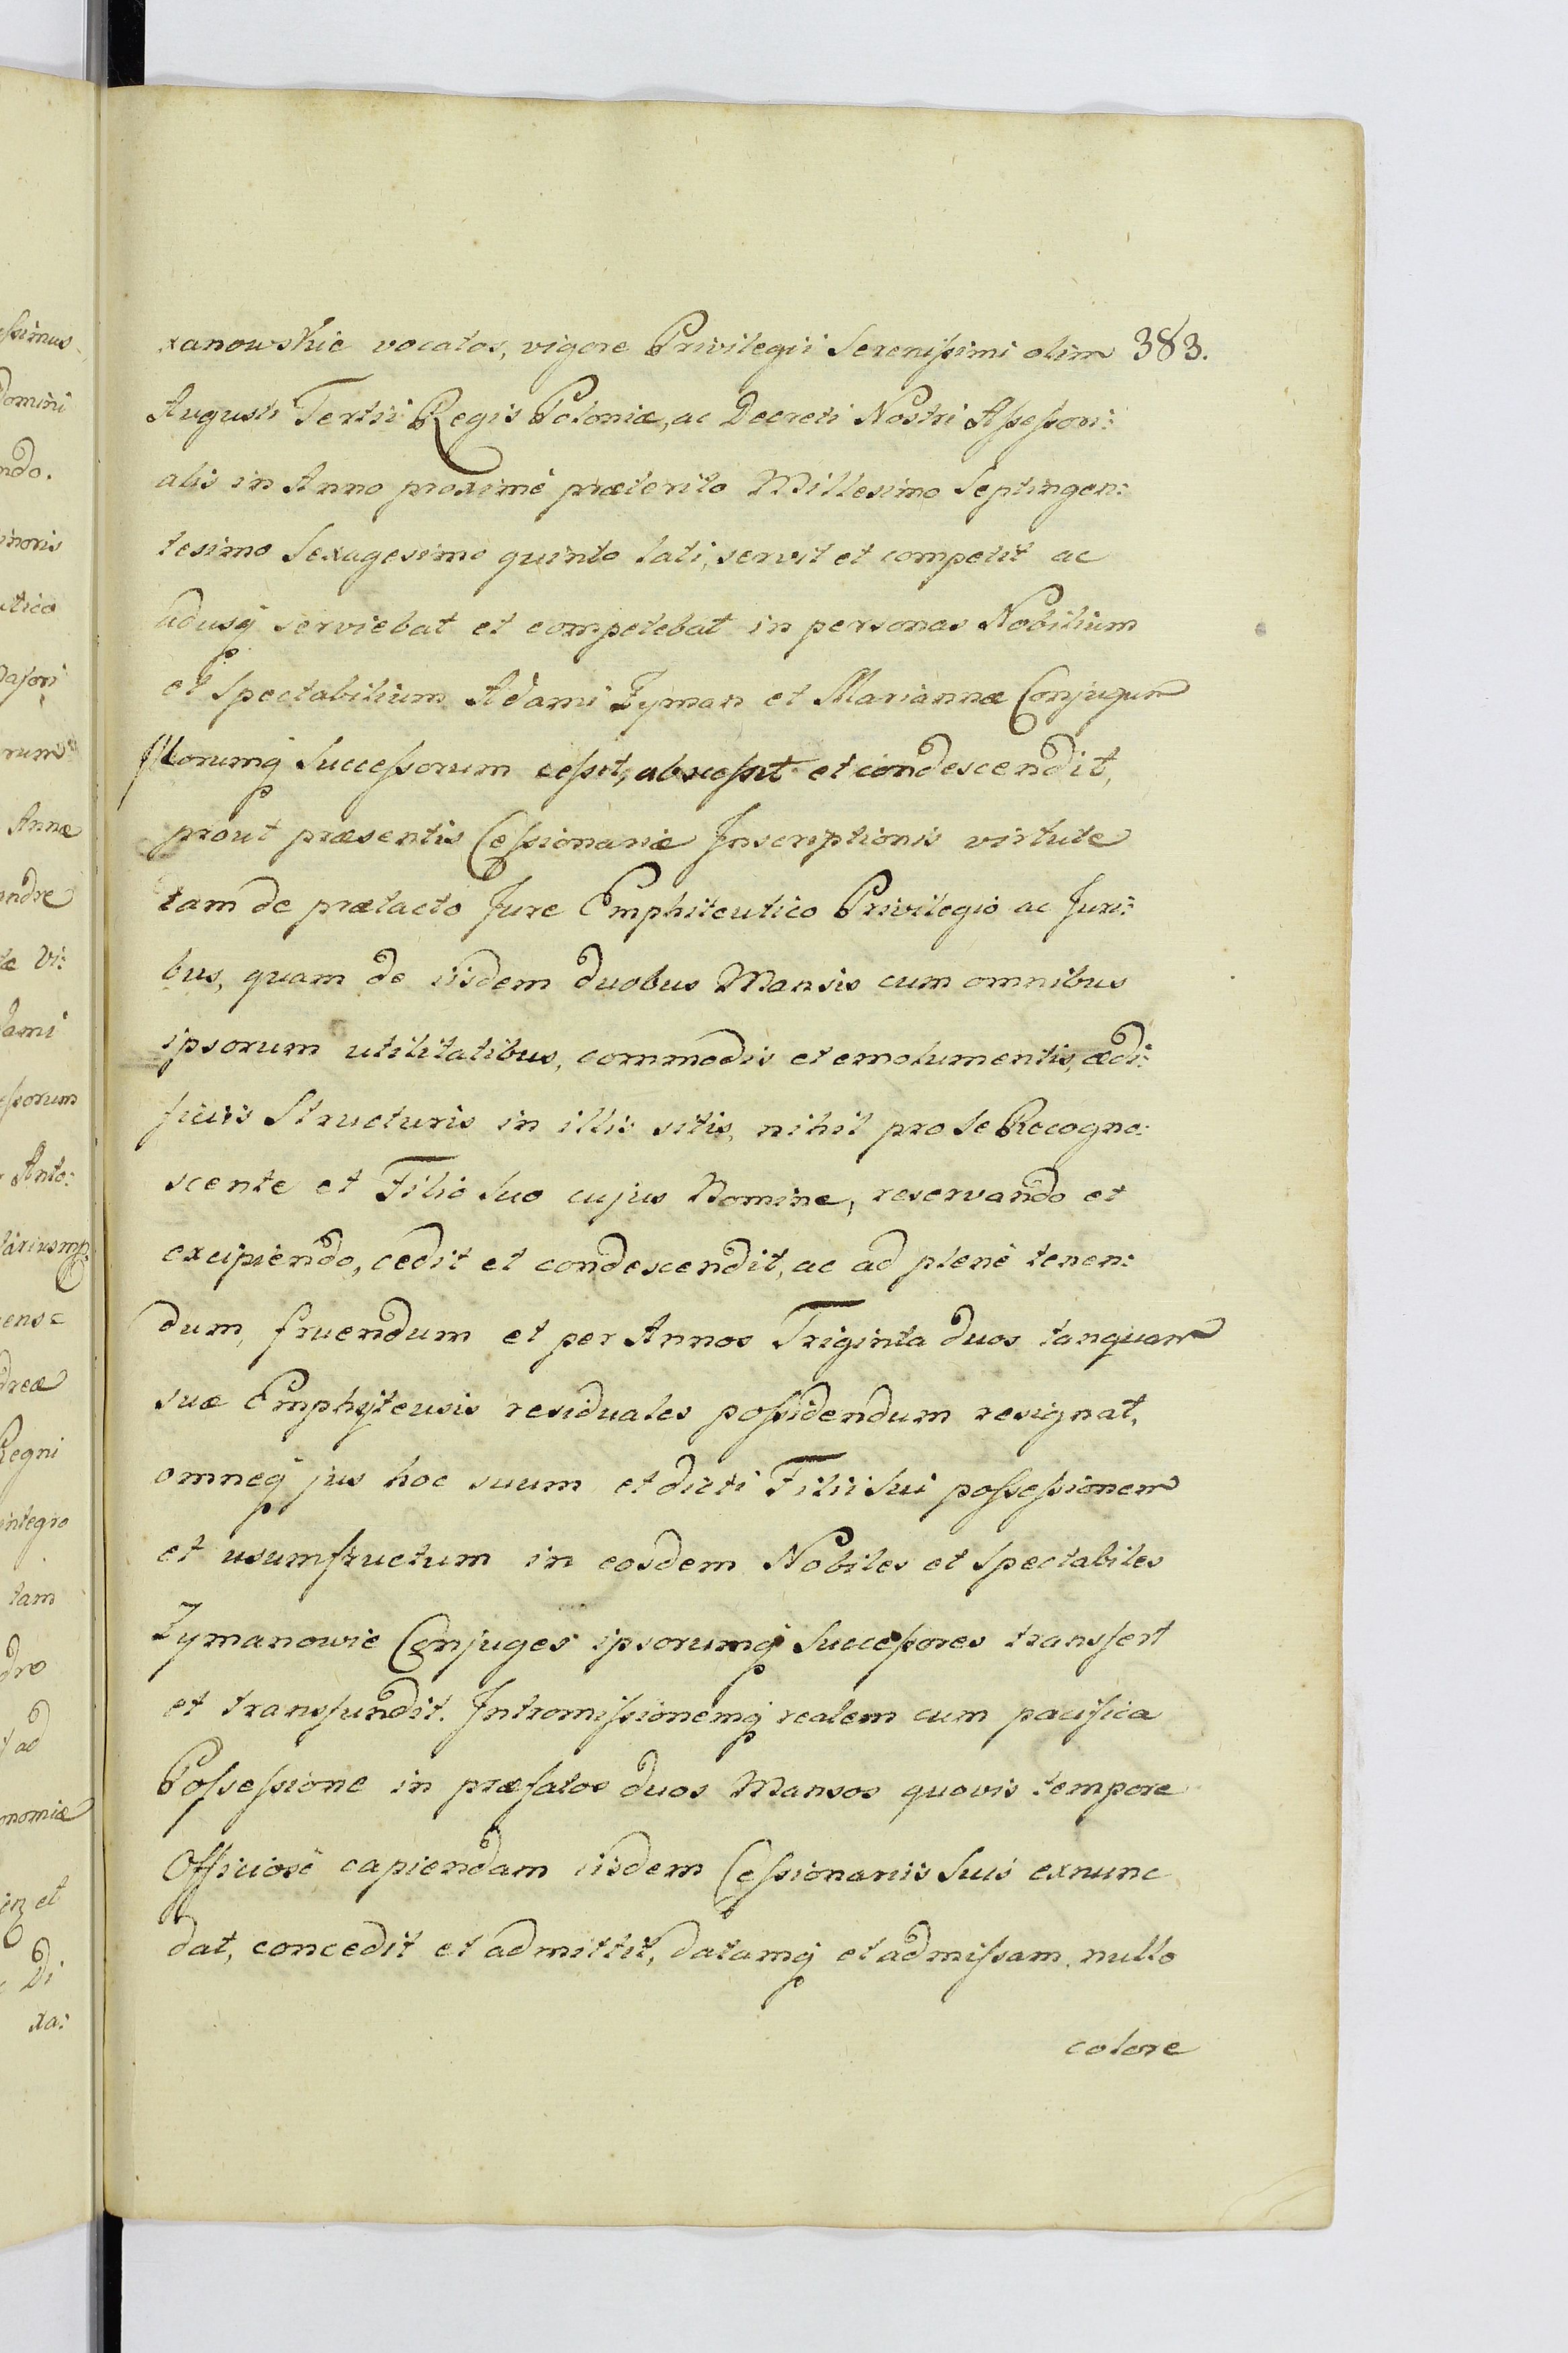 xanowskie vocatos, vigore Privilegii Serenissimi olim 383.
Augusti Tertii Regis Poloniæ, ac Decreti Nostri Assessori:
alis in Anno proximè præterito Millesimo Septingen:
tesimo Sexagesimo quinto lati, servit et competit ac
adusq serviebat et competebat in personas Nobilium
et Spectabilium Adami Zyman et Mariannæ Conjugum
Illorumq Successorum cessit, abscessit et condescendit,
prout præsentis Cessionariæ Inscriptionis virtute
tam de prætacto Jure Emphiteutico Privilegio ac Juri:
bus, quam de iisdem duobus Mansis cum omnibus
ipsorum utilitatibus, commodis et emolumentis, ædi:
ficiis Structuris in illis sitis, nihil pro se Recogno:
scente et Filio Suo cujus Nomine, reservando et
excipiendo, cedit et condescendit, ac ad plenè tenen:
dum, fruendum et per Annos Triginta duos tanquam
suæ Emphyteusis residuales possidendum resignat,
omneq jus hoc suum et dicti Filii Sui possessionem
et usumfructum in eosdem Nobiles et Spectabiles
Zymanowie Conjuges ipsorumq Successores transfert
et transfundit. Intromissionemq realem cum pacifica
Possessione in præfatos duos Mansos quovis tempore
Officiosè capiendam iisdem Cessionariis Suis exnunc
dat, concedit et admittit, datamq et admissam, nullo
colore
essimus
Domini
ndo.
Annæ
andre
æ Vi:
dami
essorum
Anto:
dreæ
Regni
integro
tam
dro
ad
onomiæ
et
Di
xa: